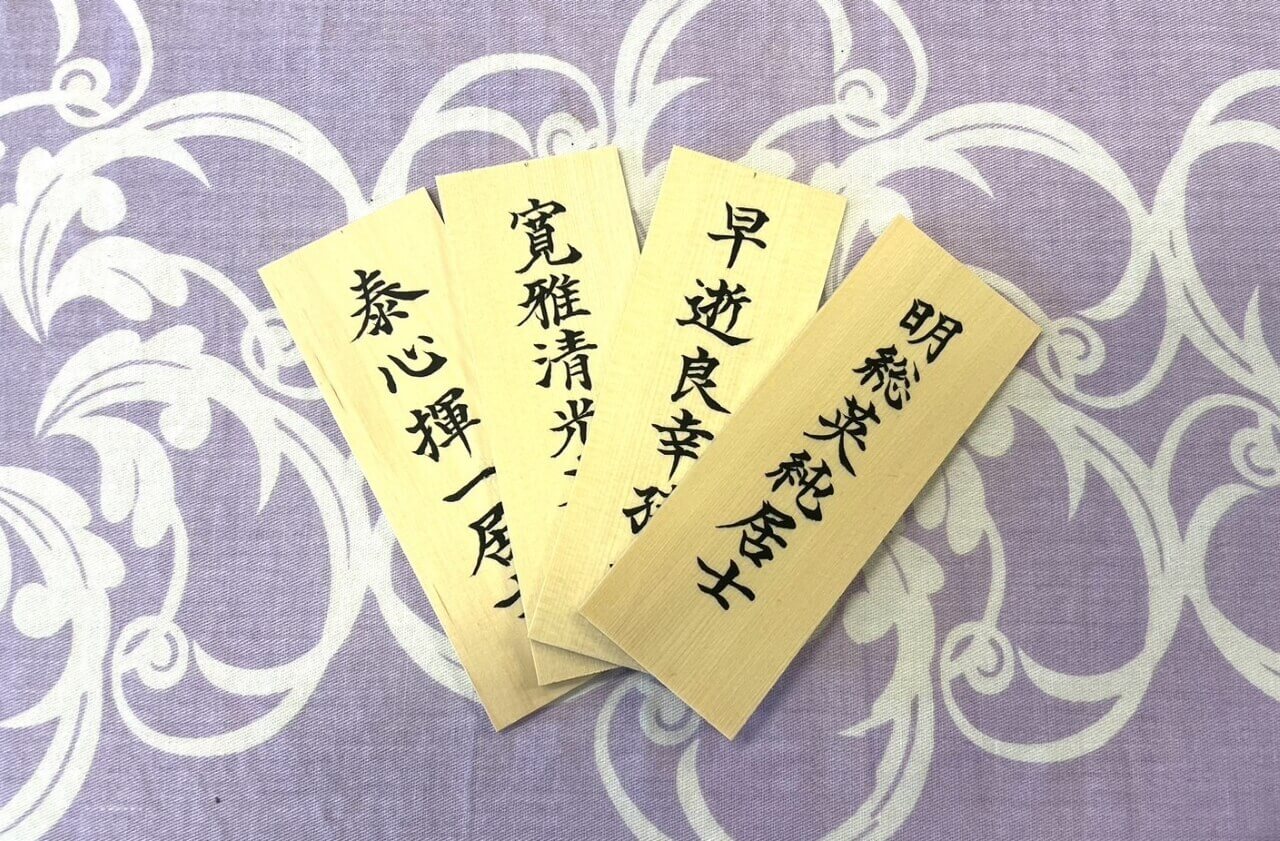 泰心揮一居士
寛雅清光
早逝良幸
明総英純居士